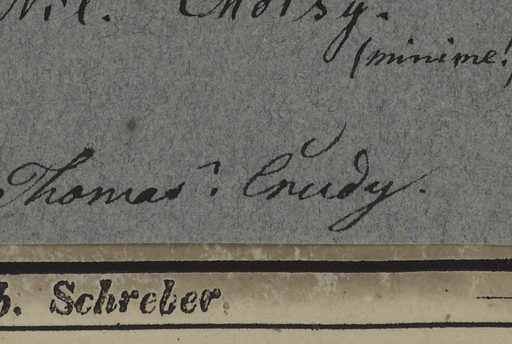 Nil. Choisy.
(minime!)
Thomas?. Crudy.
b. Schreber